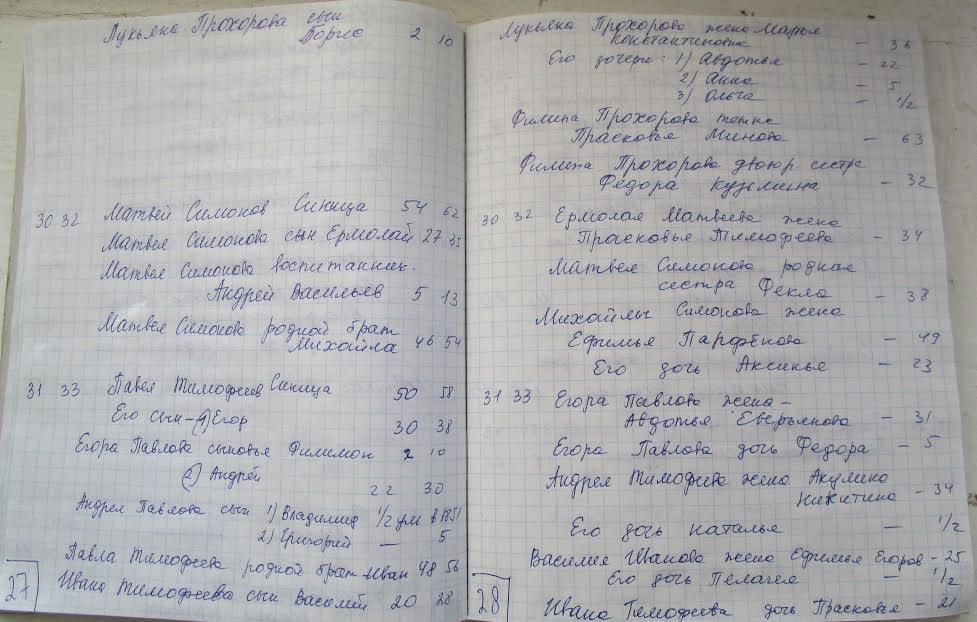 Лукьяна Прохорова сын
Борис 2 10
30 32 Матвей Симонов Синица 54 62
Матвея Симонова сын Ермолай 27 35
Матвея Симонова воспитанник.
Андрей Васильев 5 13
Матвея Симонова родной брат
Михайла 46 54
31 33 Павел Тимофеев Синица 50 58
Его сын - 1) Егор 30 38
Егора Павлова сыновья Филимон 2 10
2) Андрей 22 30
Андрея Павлова сын 1) Владимир 1/2 ум в 1851
2) Григорий — 5
Павла Тимофеева родной брат Иван 48 56
Ивана Тимофеева сын Василий 20 28
27
Лукьяна Прохорова жена Марья
Константиновна — 36
Его дочери: 1) Авдотья — 22
2) Анна — 5
3) Ольга — 1/2
Филипа Прохорова тетка
Прасковья Минова — 63
Филипа Прохорова двоюр. сестра
Федора Кузьмина — 32
30 32 Ермолая Матвеева жена
Прасковья Тимофеева — 34
Матвея Симонова родная
сестра Фекла — 38
Михайлы Симонова жена
Ефимья Парфёнова — 49
Его дочь Аксинья — 23
31 33 Егора Павлова жена -
Авдотья Еверьянова — 31
Егора Павлова дочь Федора — 5
Андрея Тимофеева жена Акулина
Никитина — 34
Его дочь Наталья — 1/2
Василия Иванова жена Ефимья Егоров - 25
Его дочь Пелагея — 1/2
Ивана Тимофеева дочь Прасковья — 21
28